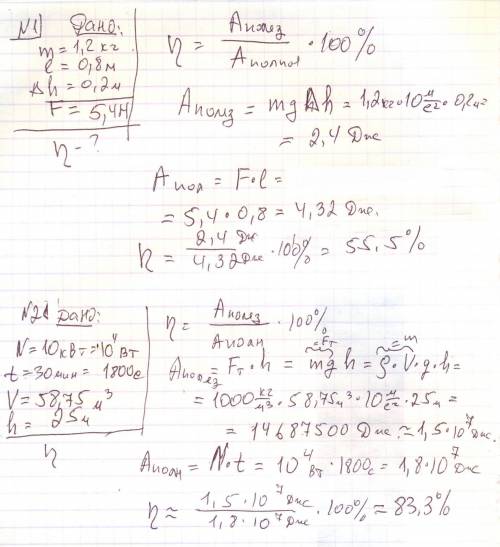 N1 Дано:
m = 1,2 кг
l = 0,8 м
Δh = 0,2 м
F = 5,4 Н
η - ?
η = Aполез / Aполное · 100%
Aполез = mgΔh = 1,2 кг · 10 м/с² · 0,2 м =
= 2,4 Дж
Aпол = F · l =
= 5,4 · 0,8 = 4,32 Дж.
η = 2,4 Дж / 4,32 Дж · 100% = 55,5%
N2 Дано:
N = 10 кВт = 10⁴ Вт
t = 30 мин = 1800 с
V = 58,75 м³
h = 25 м
η
η = Aполез / Aполн · 100%
Aполез = Fт · h = mg h = ρ · V · g · h =
= Fт
= m
= 1000 кг/м³ · 58,75 м³ · 10 м/с² · 25 м =
= 14687500 Дж ≈ 1,5 · 10⁷ Дж.
Aполн = N · t = 10⁴ Вт · 1800 с = 1,8 · 10⁷ Дж
η ≈ 1,5 · 10⁷ Дж / 1,8 · 10⁷ Дж · 100% ≈ 83,3%